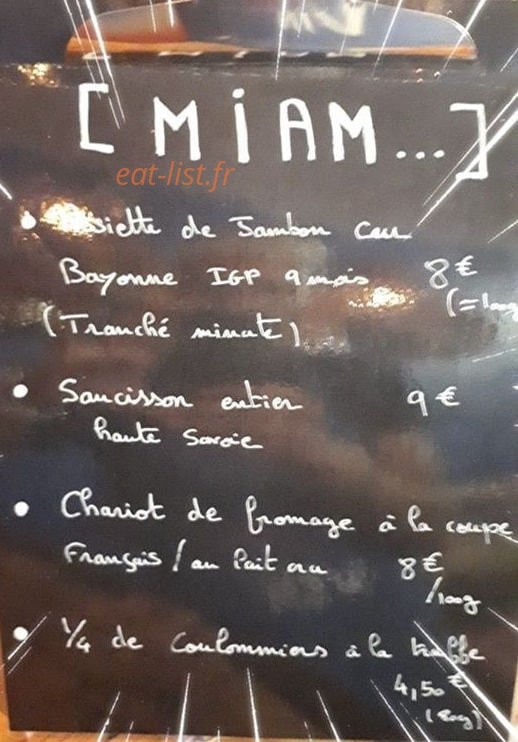 [MiAM...]
eat-list.fr
• Assiette de Jambon cru
Bayonne IGP 9 mois 8€
(Tranché minute) (=100g
• Saucisson entier 9€
haute Savoie
• Chariot de fromage à la coupe
Français / au lait cru 8€
/100g
• 1/4 de Coulommiers à la truffe
4,50€
(80g)